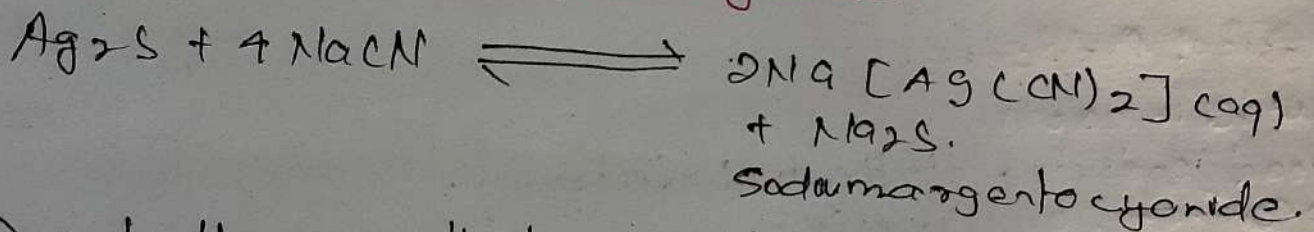 Ag2S + 4 NaCN ⇌ 2Na [Ag(CN)2] (aq)
+ Na2S.
Sodiumargentocyonide.